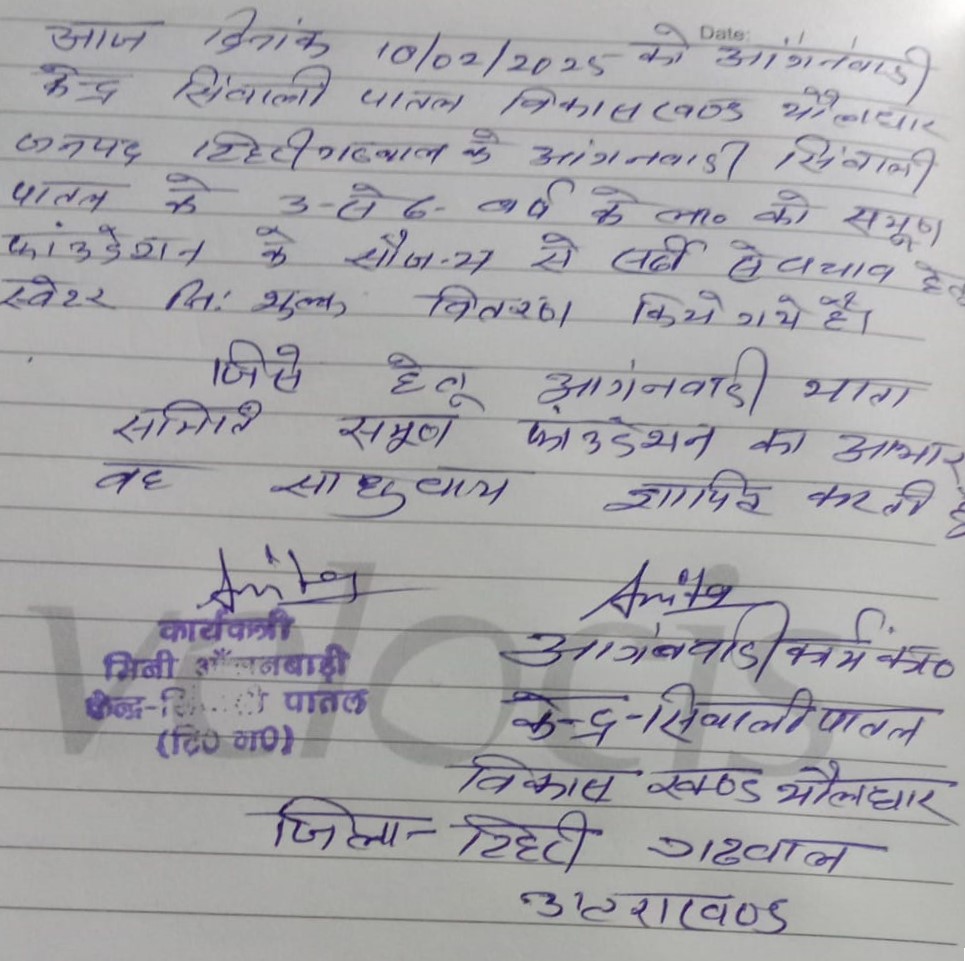 Date:
आज दिनांक 10/02/2025 को आंगनवाडी
केन्द्र सिंवाली पातल विकासखण्ड थौलधार
जनपद टिहरी गढवाल के आंगनवाडी सिंवाली
पातल के 3-से 6- वर्ष के ला० को समूण
फांउडेशन के सौजन्य से सर्दी से वचाव हेतु
स्वेटर नि: शुल्क वितरण किये गये हैं।
जिसे हेतू आगंनवाडी माता
समिति समूण फांउडेशन का आभार
वह साधुवाद ज्ञापित करती है
Anita
Anita
कार्यकत्री
मिनी आँगनबाड़ी
केन्द्र- पातल
(टि० ग०)
आगंनवाडी कार्यकत्री
केन्द्र-सिंवाली पातल
विकास खण्ड थौलधार
जिला- टिहरी गढवाल
उत्तराखण्ड
velocis